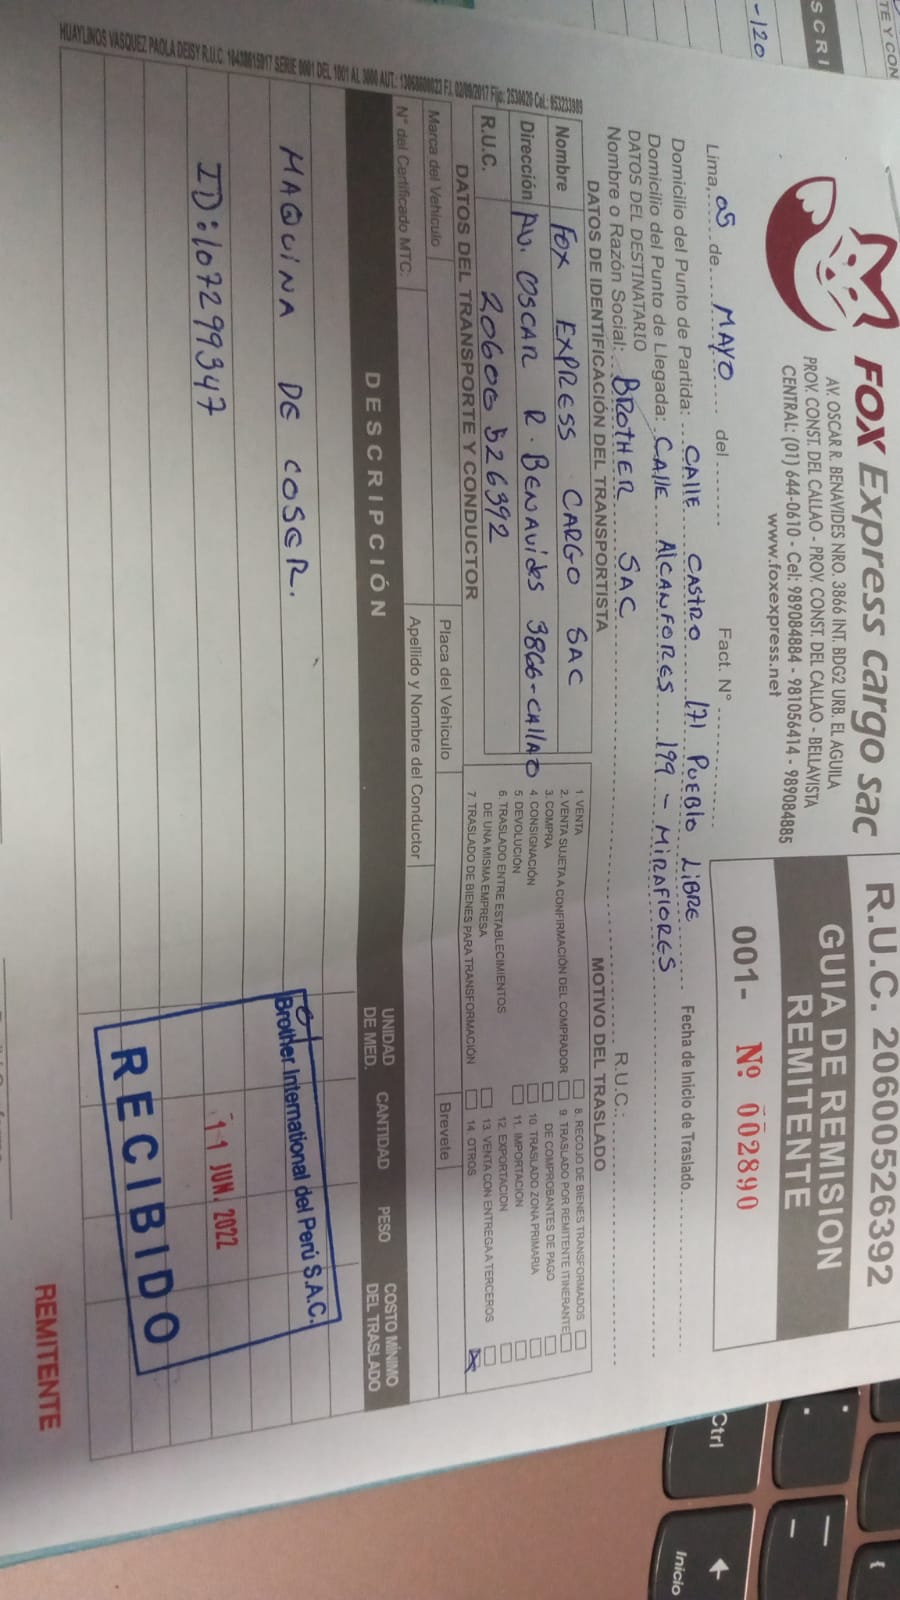 FOX Express cargo sac
AV. OSCAR R. BENAVIDES NRO. 3866 INT. BDG2 URB. EL AGUILA
PROV. CONST. DEL CALLAO - PROV. CONST. DEL CALLAO - BELLAVISTA
CENTRAL: (01) 644-0610 - Cel: 989084884 - 981056414 - 989084885
www.foxexpress.net
R.U.C. 20600526392
GUIA DE REMISION
REMITENTE
001- Nº 002890
Lima, 05 de MAYO del Fact. N°
Domicilio del Punto de Partida: CALLE CASTRO 171 PUEBLO LIBRE Fecha de Inicio de Traslado
Domicilio del Punto de Llegada: CALLE ALCANFORES 199 - MIRAFLORES
DATOS DEL DESTINATARIO
Nombre o Razón Social: BROTHER SAC R.U.C.:
DATOS DE IDENTIFICACIÓN DEL TRANSPORTISTA
Nombre FOX EXPRESS CARGO SAC
Dirección AV. OSCAR R. BENAVIDES 3866-CALLAO
R.U.C. 20600526392
MOTIVO DEL TRASLADO
1 VENTA
2. VENTA SUJETA A CONFIRMACIÓN DEL COMPRADOR
3. COMPRA
4. CONSIGNACIÓN
5 DEVOLUCIÓN
6. TRASLADO ENTRE ESTABLECIMIENTOS
DE UNA MISMA EMPRESA
7. TRASLADO DE BIENES PARA TRANSFORMACIÓN
8. RECOJO DE BIENES TRANSFORMADOS
9. TRASLADO POR REMITENTE ITINERANTE
DE COMPROBANTES DE PAGO
10. TRASLADO ZONA PRIMARIA
11. IMPORTACION
12. EXPORTACION
13. VENTA CON ENTREGA A TERCEROS
14. OTROS
DATOS DEL TRANSPORTE Y CONDUCTOR
Marca del Vehículo Placa del Vehiculo
N° del Certificado MTC. Apellido y Nombre del Conductor Brevete
DESCRIPCIÓN UNIDAD DE MED. CANTIDAD PESO COSTO MÍNIMO DEL TRASLADO
MAQUINA DE COSER.
ID: 107299347
Brother International del Perú S.A.C.
11 JUN. 2022
RECIBIDO
REMITENTE
HUAYLINOS VASQUEZ PAOLA DEISY R.U.C. 10430615917 SERIE 0001 DEL 1001 AL 3000 AUT.: 13058600023 F.I. 02/09/2017 Fijo: 2530020 Cel.: 953233989
TE Y CON
SCRI
-120
Ctrl
Inicio